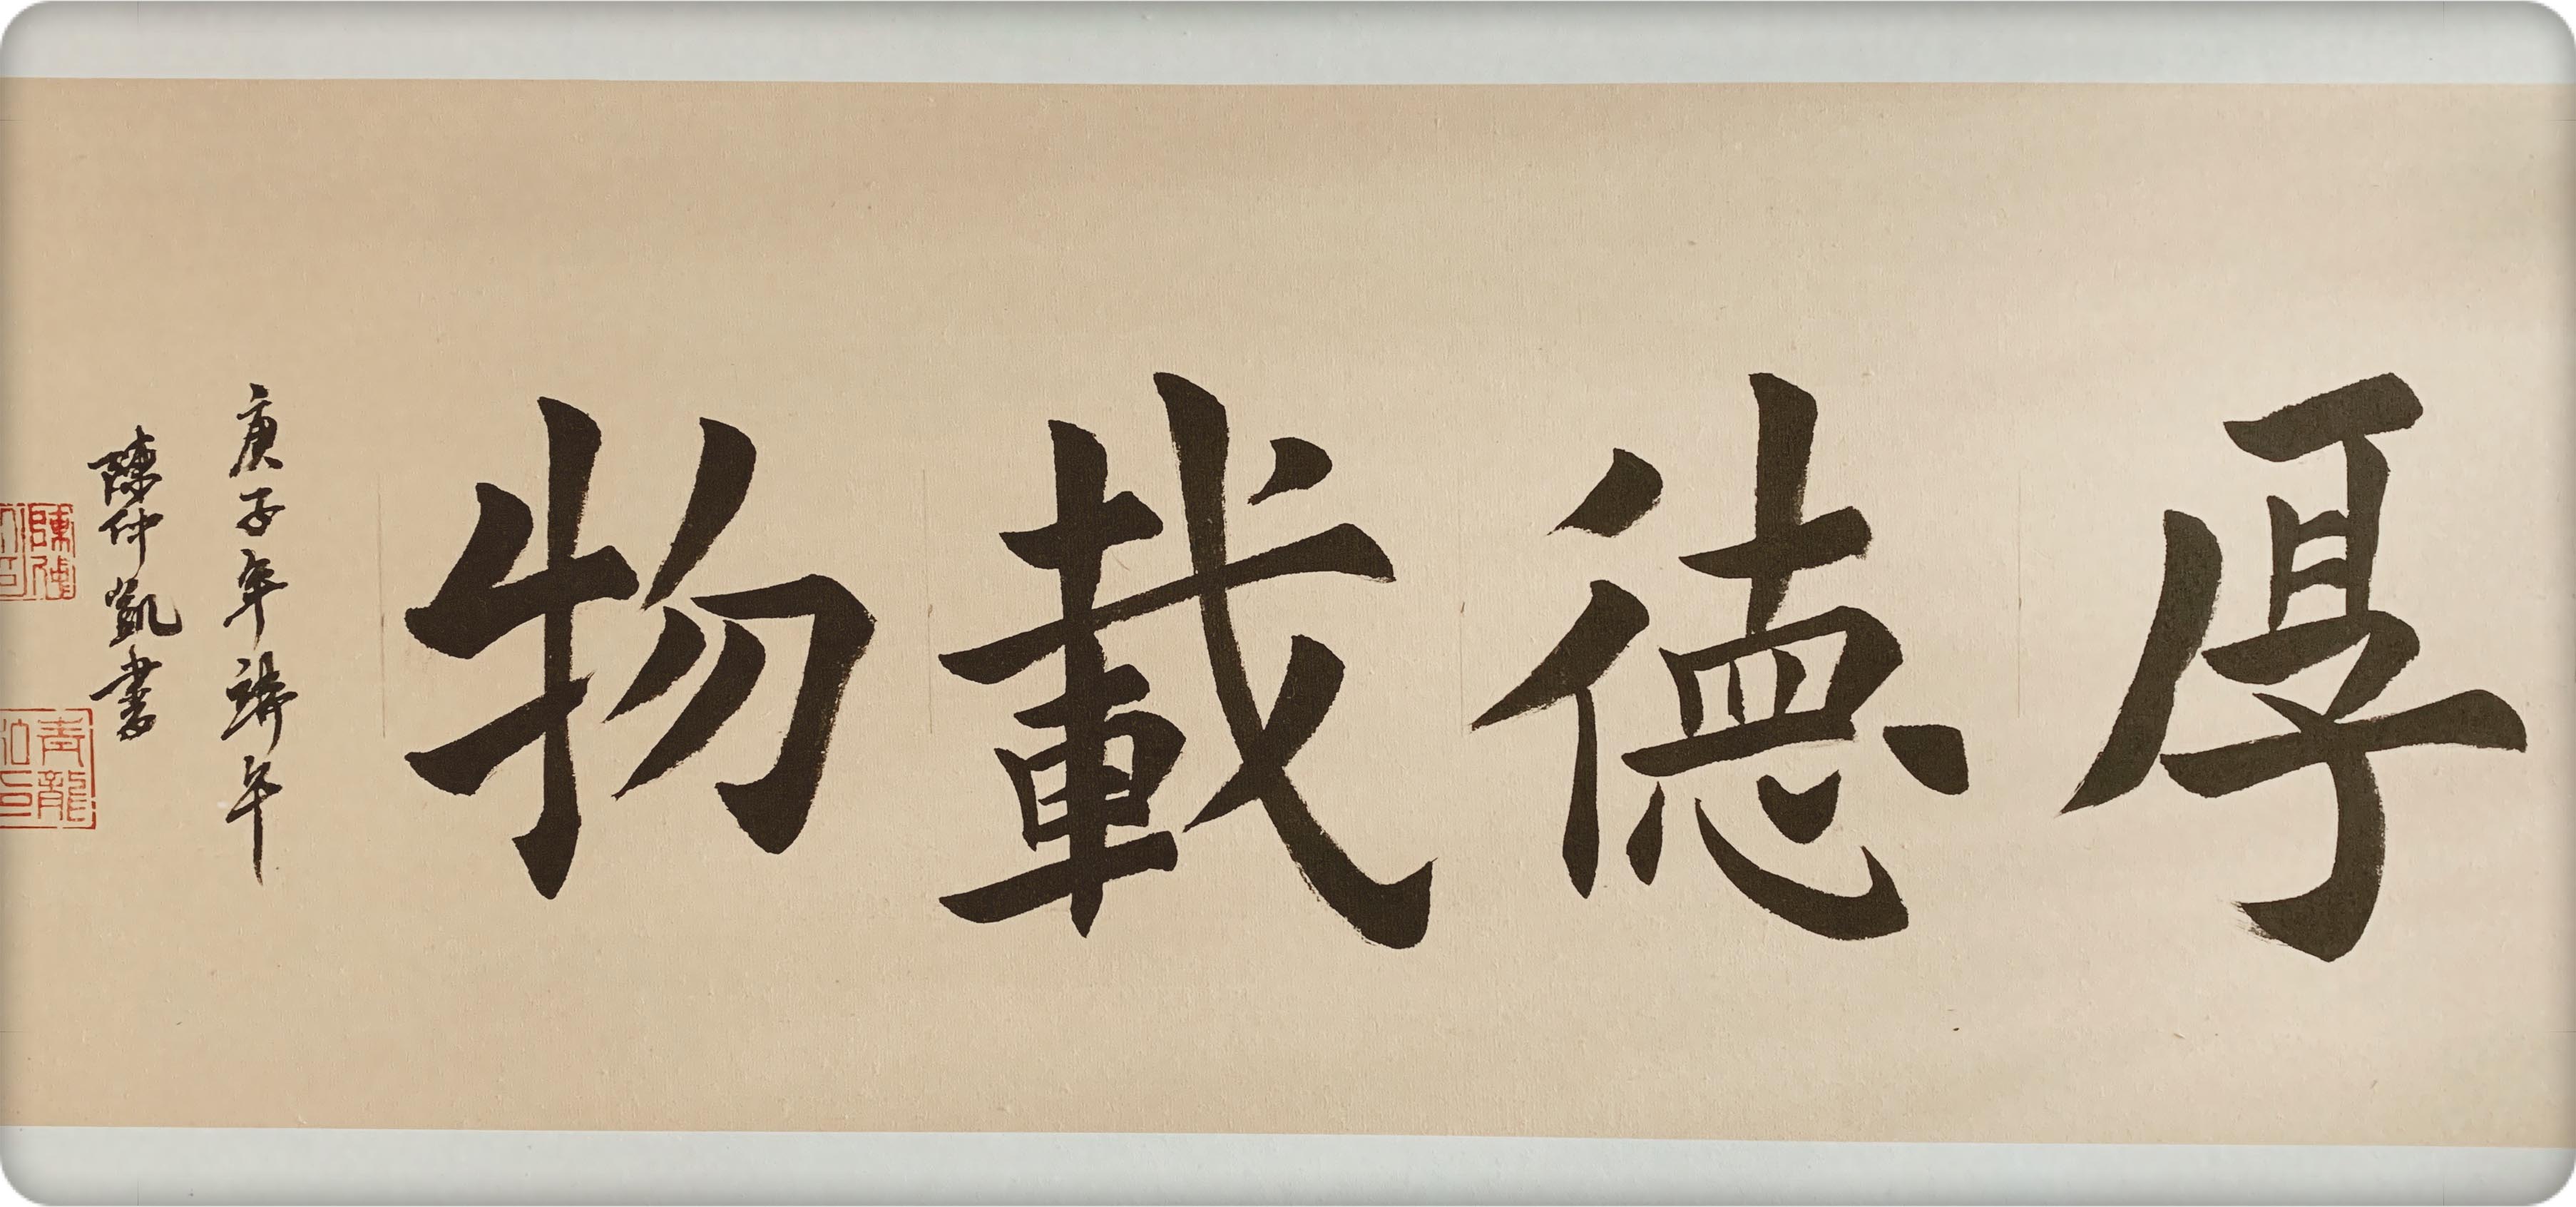 厚德載物
庚子年端午
陳仲凱書
青龍